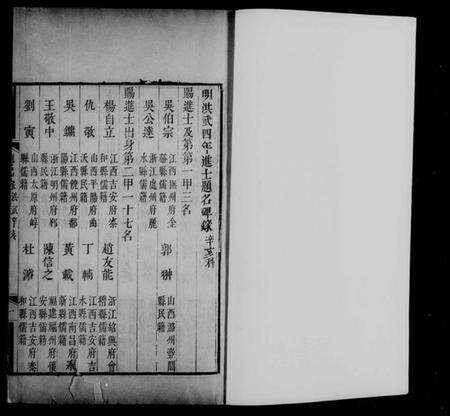 明洪武四年進士題名碑錄 辛亥科
賜進士及第第一甲三名
吳伯宗 江西撫州府金谿縣儒籍
郭翀 山西潞州壺關縣民籍
吳公達 浙江處州府麗水縣儒籍
賜進士出身第二甲一十七名
楊自立 江西吉安府泰和縣儒籍
趙友能 浙江紹興府會稽縣儒籍
仇敬 山西平陽府曲沃縣民籍
丁輔 江西吉安府吉水縣儒籍
吳鏞 江西饒州府都陽縣儒籍
黃載 江西南昌府縣儒籍
王敬中 浙江明州府鄞縣民籍
陳信之 福建福州府懷安縣儒籍
劉寅 山西太原府崞縣儒籍
杜濬 江西吉安府泰和縣儒籍